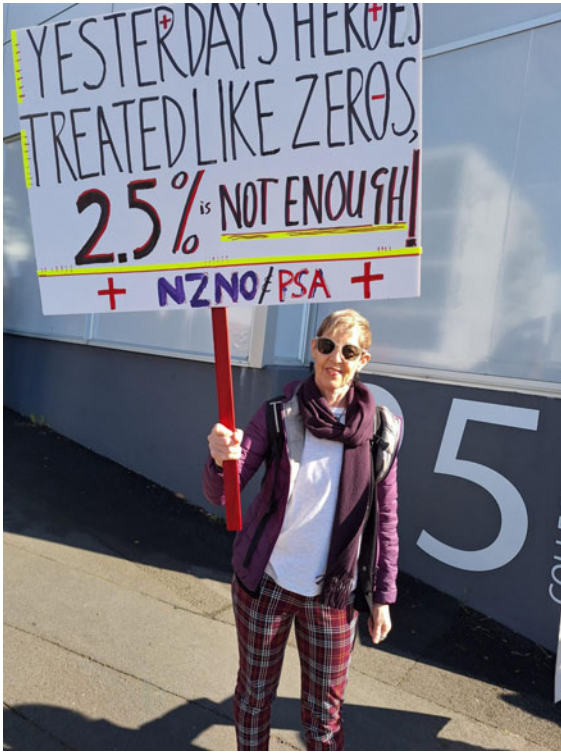 YESTERDAY'S HEROES
TREATED LIKE ZEROS,
2.5% is NOT ENOUGH!
NZNO & PSA
5